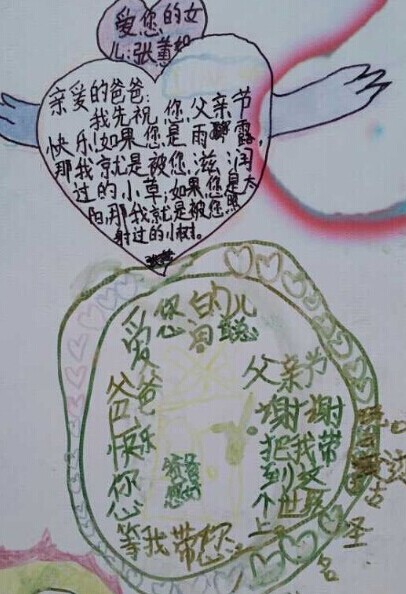 爱您的女
儿:张蕙如
亲爱的爸爸:
我先祝,您,父亲节
快乐!如果您是雨露,
那我就是被您滋润
过的小草;如果您是太
阳,那我就是被您照
射过的小树。
爱您的儿
父亲节
爸爸
快乐
谢谢
把我带
到这
个世界
上
您
等我带您
名